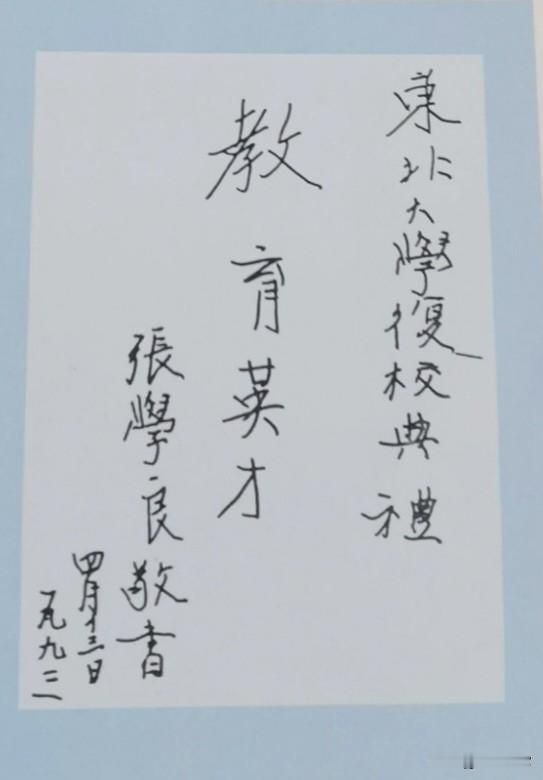 東北大學復校典禮
教育英才
張學良敬書
四月十三日
一九九三